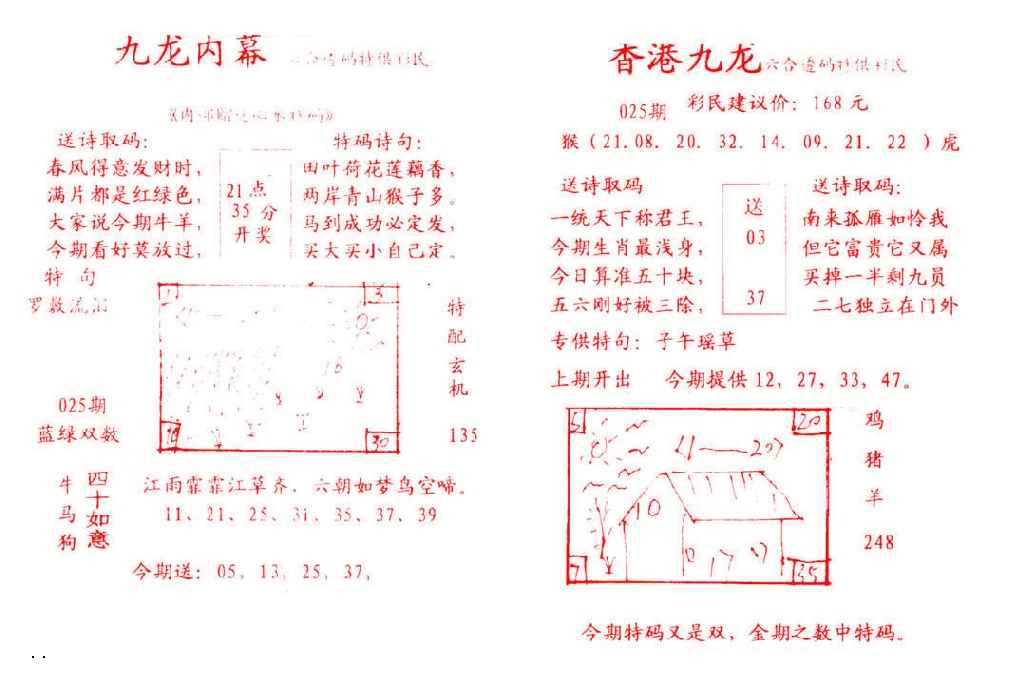 九龙内幕
码特供彩民
送诗取码：
春风得意发财时，
满片都是红绿色，
大家说今期牛羊，
今期看好莫放过，
21点
35分
开奖
特码诗句：
田叶荷花莲藕香，
两岸青山猴子多。
马到成功必定发，
买大买小自己定。
特 句
1
3
特
配
玄
机
135
025期
蓝绿双数
16
30
牛
马
狗
四十如意
江雨霏霏江草齐．六朝如梦鸟空啼。
11、21、25、31、35、37、39
今期送：05，13，25，37，
香港九龙
六合透码特供彩民
025期
彩民建议价：168元
猴（21.08．20．32．14．09．21．22 ）虎
送诗取码
一统天下称君王，
今期生肖最浅身，
今日算准五十块，
五六刚好被三除，
送
03
37
送诗取码：
南来孤雁如怜我
但它富贵它又属
买掉一半剩九员
二七独立在门外
专供特句：子午瑶草
上期开出 今期提供12，27，33，47。
5
20
10
7
35
鸡
猪
羊
248
今期特码又是双，金期之数中特码。